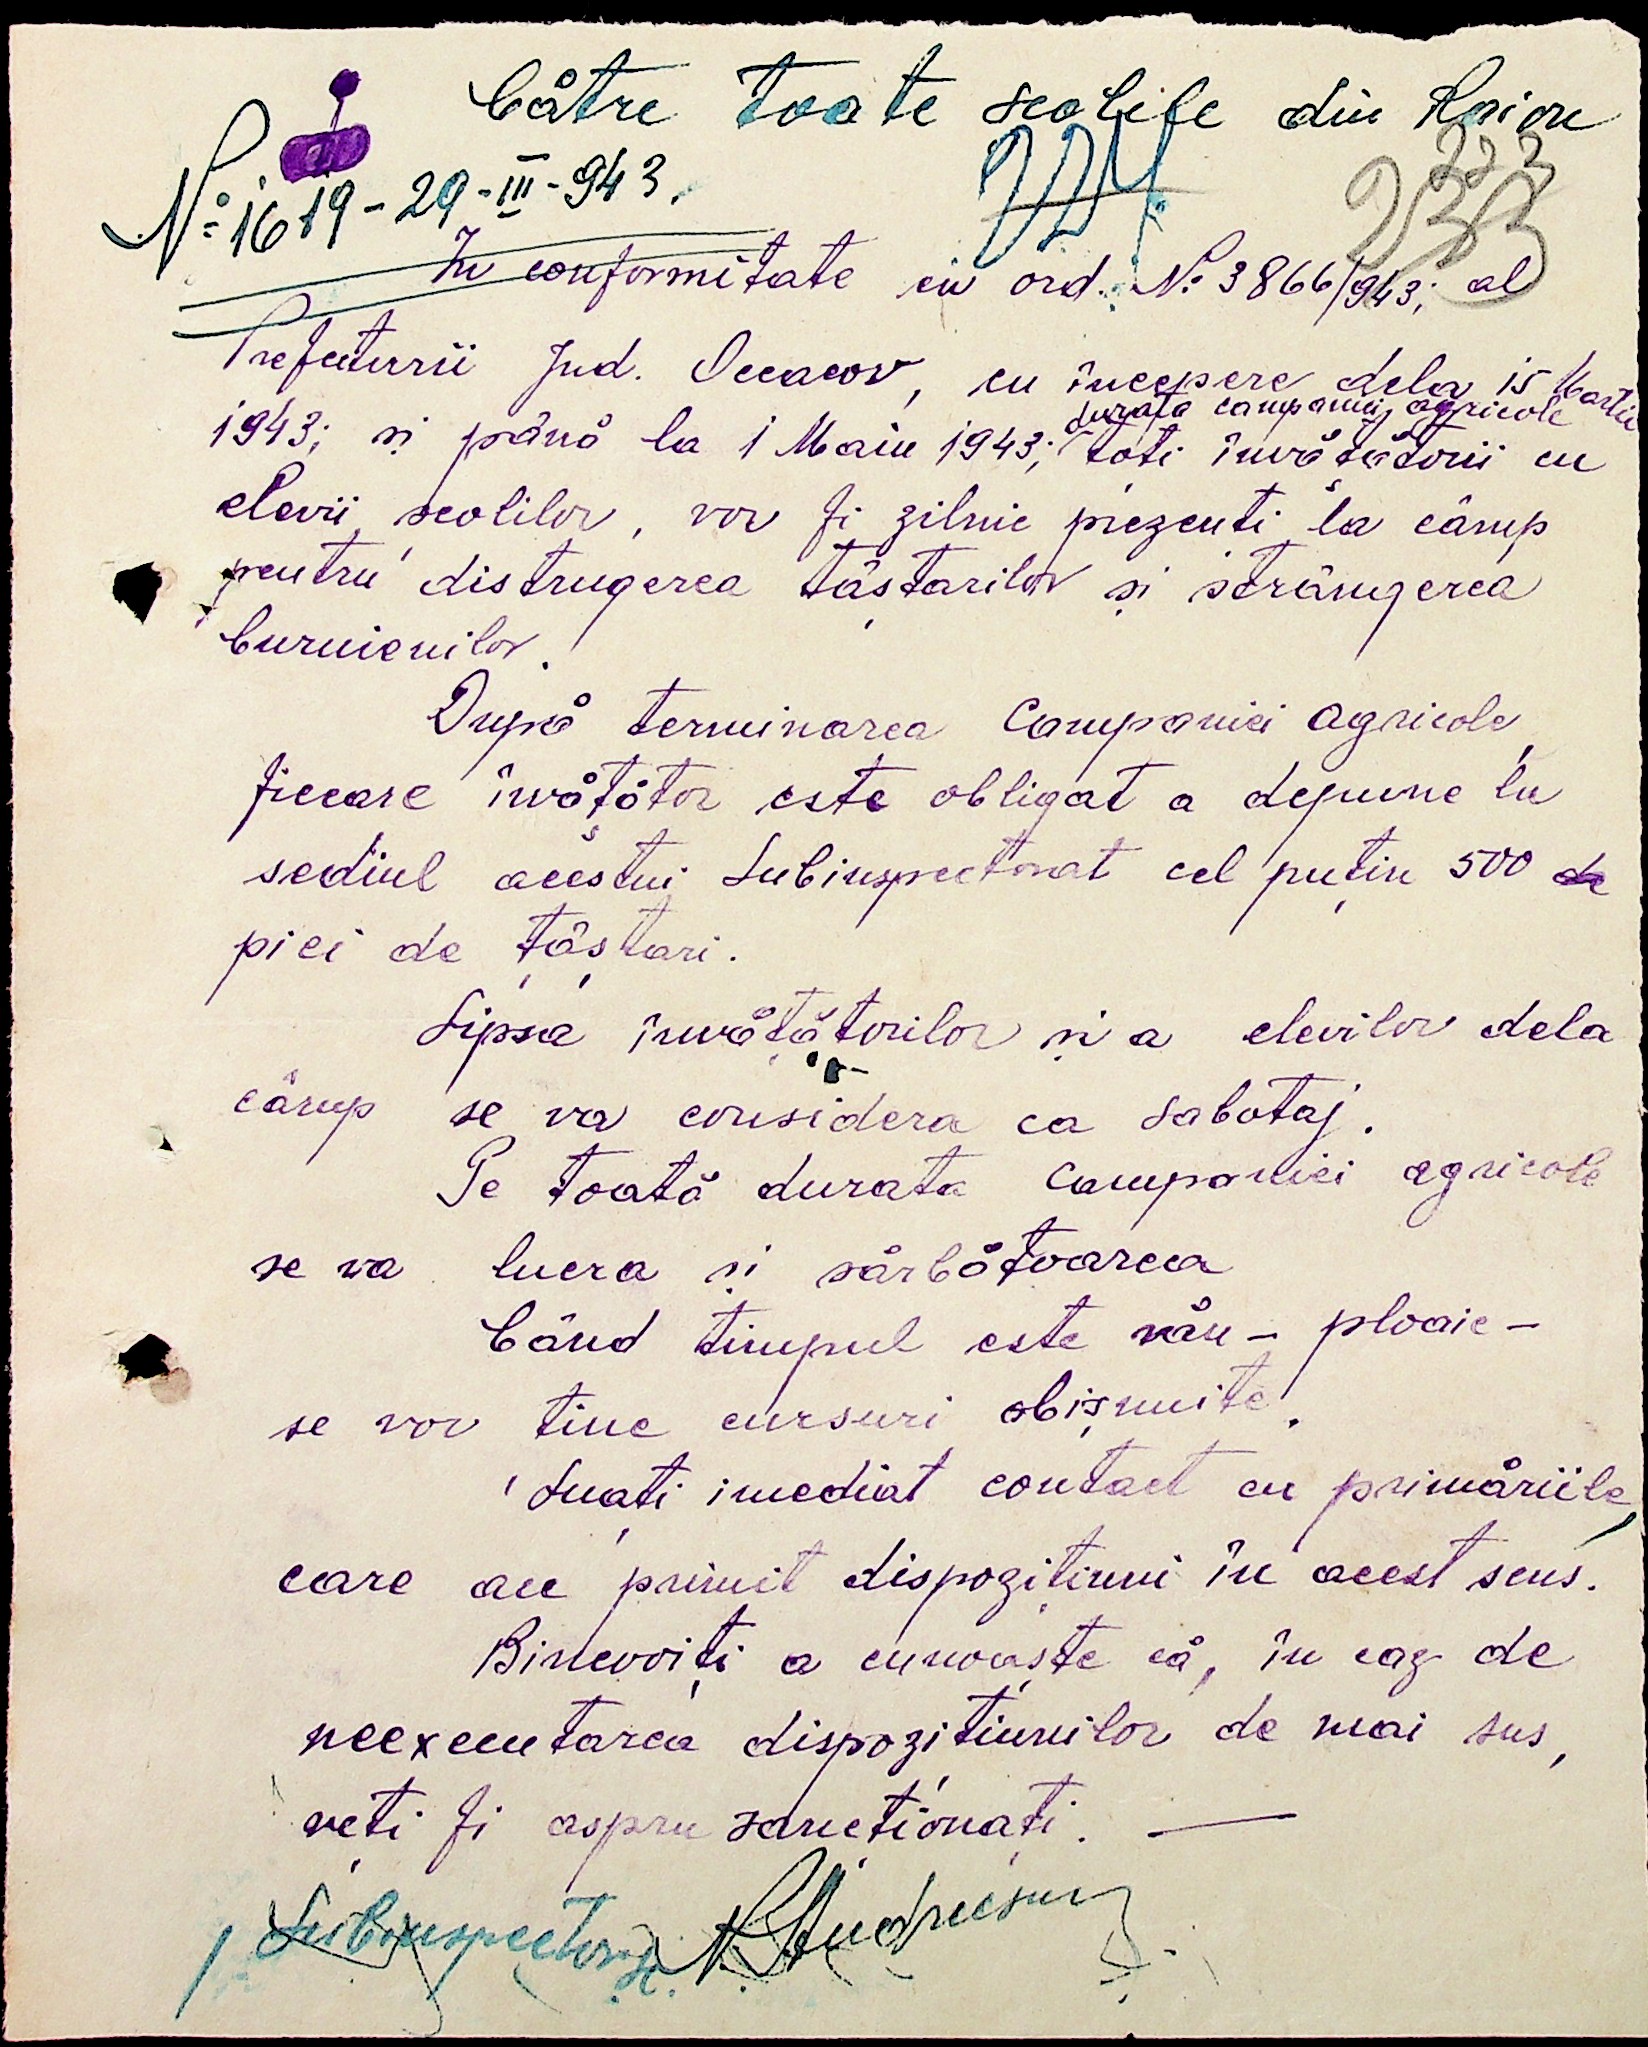 Către toate scolile din Raion
224
223
No: 1619-29-III-943.
In conformitate cu ord. No 3866/943; al
Prefecturii Jud. Oceacov, cu începere dela 15 Martie
durata campaniei agricole
1943; și până la 1 Maiu 1943; toti învățătorii cu
elevii scolilor, vor fi zilnic prezenti la câmp
pentru distrugerea țâștarilor și strângerea
buruienilor.
După terminarea campaniei agricole,
fiecare învățător este obligat a depune la
sediul acestui Subinspectorat cel puțin 500 de
piei de țâștari.
Lipsa învățătorilor și a elevilor dela
câmp se va considera ca sabotaj.
Pe toată durata campaniei agricole
se va lucra și sărbătoarea
Când timpul este rău - ploaie -
se vor tine cursuri obișnuite.
Luați imediat contact cu primăriile,
care au primit dispozițiuni în acest sens.
Binevoiți a cunoaște că, în caz de
neexecutarea dispozițiunilor de mai sus,
veți fi aspru sancționați. —
Subinspector